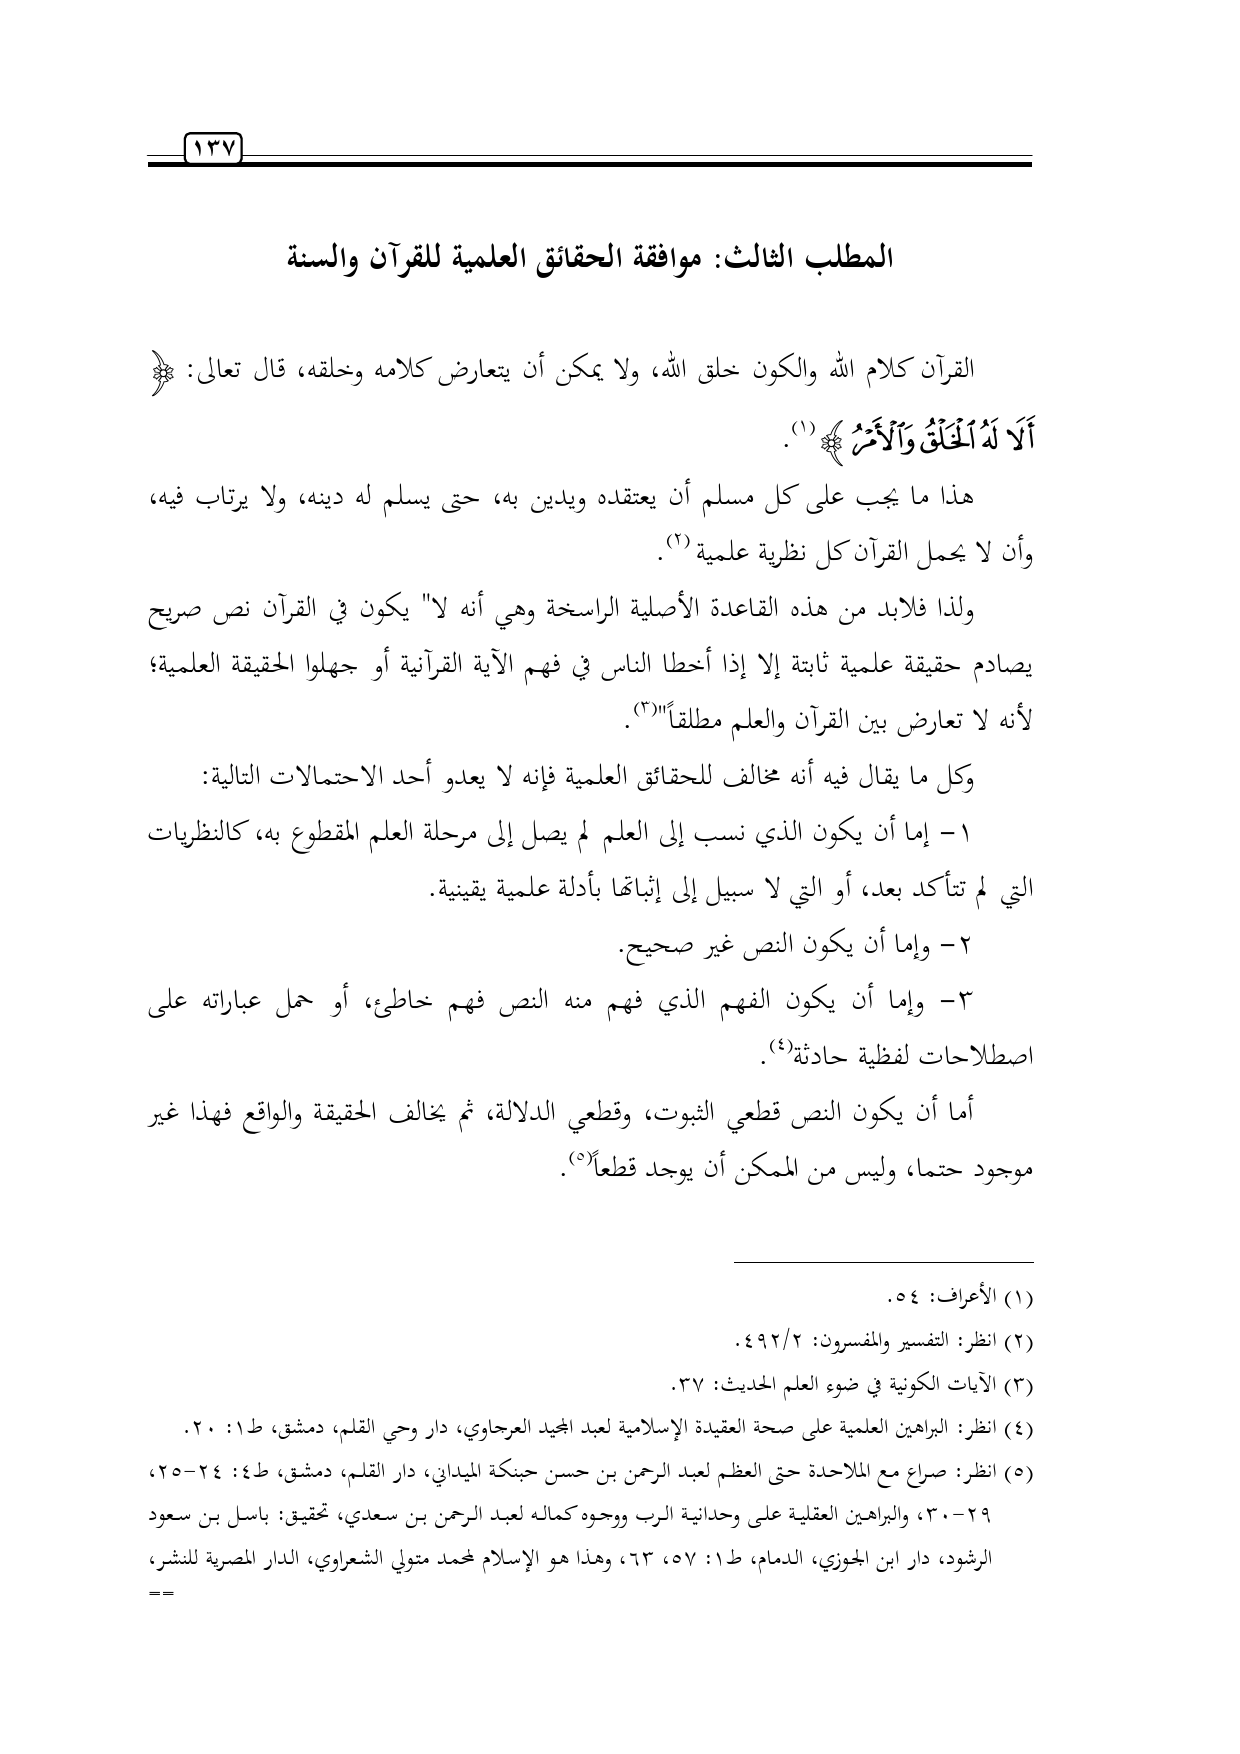 ١٣٧
المطلب الثالث: موافقة الحقائق العلمية للقرآن والسنة
القرآن كلام الله والكون خلق الله، ولا يمكن أن يتعارض كلامه وخلقه، قال تعالى: ﴿
أَلَا لَهُ ٱلْخَلْقُ وَٱلْأَمْرُ ﴾(١).
هذا ما يجب على كل مسلم أن يعتقده ويدين به، حتى يسلم له دينه، ولا يرتاب فيه،
وأن لا يحمل القرآن كل نظرية علمية (٢).
ولذا فلابد من هذه القاعدة الأصلية الراسخة وهي أنه لا" يكون في القرآن نص صريح
يصادم حقيقة علمية ثابتة إلا إذا أخطا الناس في فهم الآية القرآنية أو جهلوا الحقيقة العلمية؛
لأنه لا تعارض بين القرآن والعلم مطلقاً"(٣).
وكل ما يقال فيه أنه مخالف للحقائق العلمية فإنه لا يعدو أحد الاحتمالات التالية:
١- إما أن يكون الذي نسب إلى العلم لم يصل إلى مرحلة العلم المقطوع به، كالنظريات
التي لم تتأكد بعد، أو التي لا سبيل إلى إثباتها بأدلة علمية يقينية.
٢- وإما أن يكون النص غير صحيح.
٣- وإما أن يكون الفهم الذي فهم منه النص فهم خاطئ، أو حمل عباراته على
اصطلاحات لفظية حادثة(٤).
أما أن يكون النص قطعي الثبوت، وقطعي الدلالة، ثم يخالف الحقيقة والواقع فهذا غير
موجود حتما، وليس من الممكن أن يوجد قطعاً(٥).
(١) الأعراف: ٥٤.
(٢) انظر: التفسير والمفسرون: ٤٩٢/٢.
(٣) الآيات الكونية في ضوء العلم الحديث: ٣٧.
(٤) انظر: البراهين العلمية على صحة العقيدة الإسلامية لعبد المجيد العرجاوي، دار وحي القلم، دمشق، ط١: ٢٠.
(٥) انظر: صراع مع الملاحدة حتى العظم لعبد الرحمن بن حسن حبنكة الميداني، دار القلم، دمشق، ط٤: ٢٤-٢٥،
٢٩-٣٠، والبراهين العقلية على وحدانية الرب ووجوه كماله لعبد الرحمن بن سعدي، تحقيق: باسل بن سعود
الرشود، دار ابن الجوزي، الدمام، ط١: ٥٧، ٦٣، وهذا هو الإسلام لمحمد متولي الشعراوي، الدار المصرية للنشر،
==